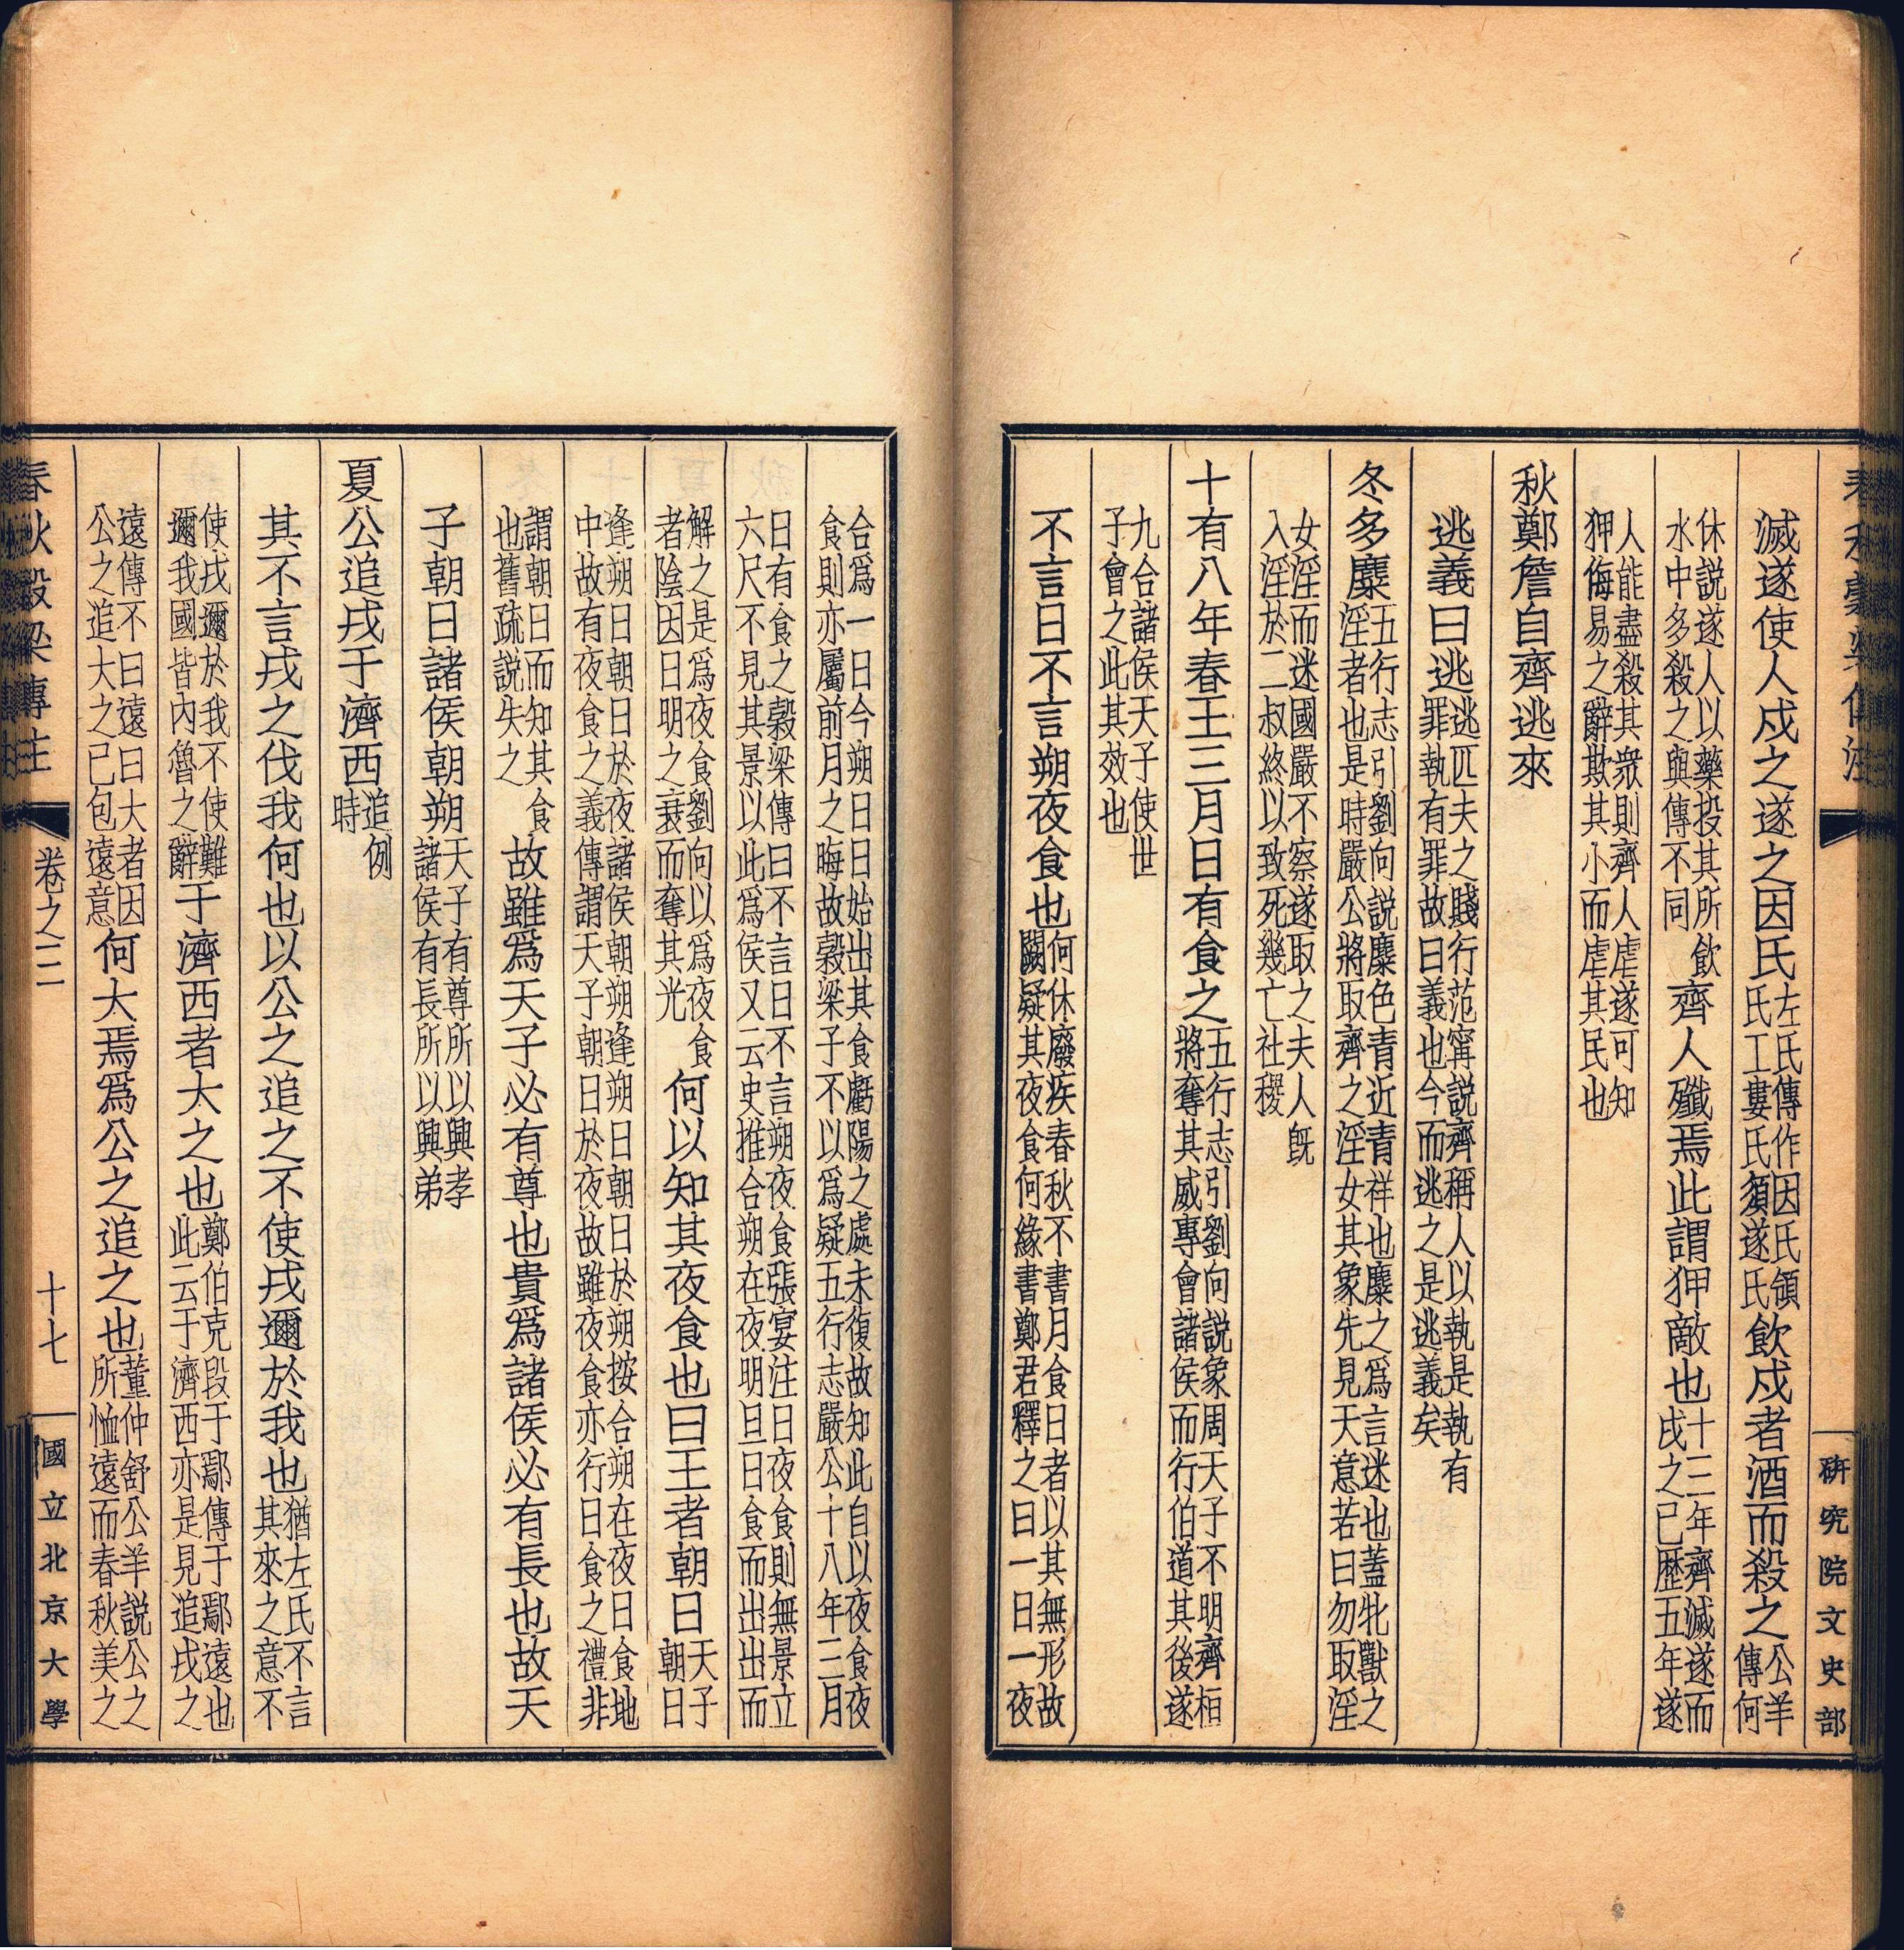 春秋穀梁傳注
研究院文史部
滅遂使人戍之遂之因氏左氏傳作因氏領氏工婁氏須遂氏飲戍者酒而殺之公羊傳何
休説遂人以藥投其所飲水中多殺之與傳不同齊人殲焉此謂狎敵也十三年齊滅遂而戍之已歷五年遂
人能盡殺其眾則齊人虐遂可知狎侮易之辭欺其小而虐其民也
秋鄭詹自齊逃來
逃義曰逃逃匹夫之賤行范甯説齊稱人以執是執有罪執有罪故曰義也今而逃之是逃義矣
冬多麋五行志引劉向説麋色青近青祥也麋之爲言迷也蓋牝獸之淫者也是時嚴公將取齊之淫女其象先見天意若曰勿取淫
女淫而迷國嚴不察遂取之夫人旣入淫於二叔終以致死幾亡社稷
十有八年春王三月日有食之五行志引劉向説象周天子不明齊桓將奪其威專會諸侯而行伯道其後遂
九合諸侯天子使世子會之此其效也
不言日不言朔夜食也何休廢疾春秋不書月食日者以其無形故闕疑其夜食何緣書鄭君釋之曰一日一夜
合爲一日今朔日日始出其食虧陽之處未復故知此自以夜食夜食則亦屬前月之晦故穀梁子不以爲疑五行志嚴公十八年三月
日有食之穀梁傳曰不言日不言朔夜食張宴注日夜食則無景立六尺不見其景以此爲侯又云史推合朔在夜明旦日食而出出而
解之是爲夜食劉向以爲夜食者陰因日明之衰而奪其光何以知其夜食也曰王者朝日天子朝日
逢朔日朝日於夜諸侯朝朔逢朔日朝日於朔按合朔在夜日食地中故有夜食之義傳謂天子朝日於夜故雖夜食亦行日食之禮非
謂朝日而知其食也舊疏説失之故雖爲天子必有尊也貴爲諸侯必有長也故天
子朝日諸侯朝朔天子有尊所以興孝諸侯有長所以興弟
夏公追戎于濟西追例時
其不言戎之伐我何也以公之追之不使戎邇於我也猶左氏不言其來之意不
使戎邇於我不使難邇我國皆內魯之辭于濟西者大之也鄭伯克段于鄢傳于鄢遠也此云于濟西亦是見追戎之
遠傳不曰遠曰大者因公之追大之已包遠意何大焉爲公之追之也董仲舒公羊説公之所恤遠而春秋美之
春秋穀梁傳注
卷之三
十七
國立北京大學